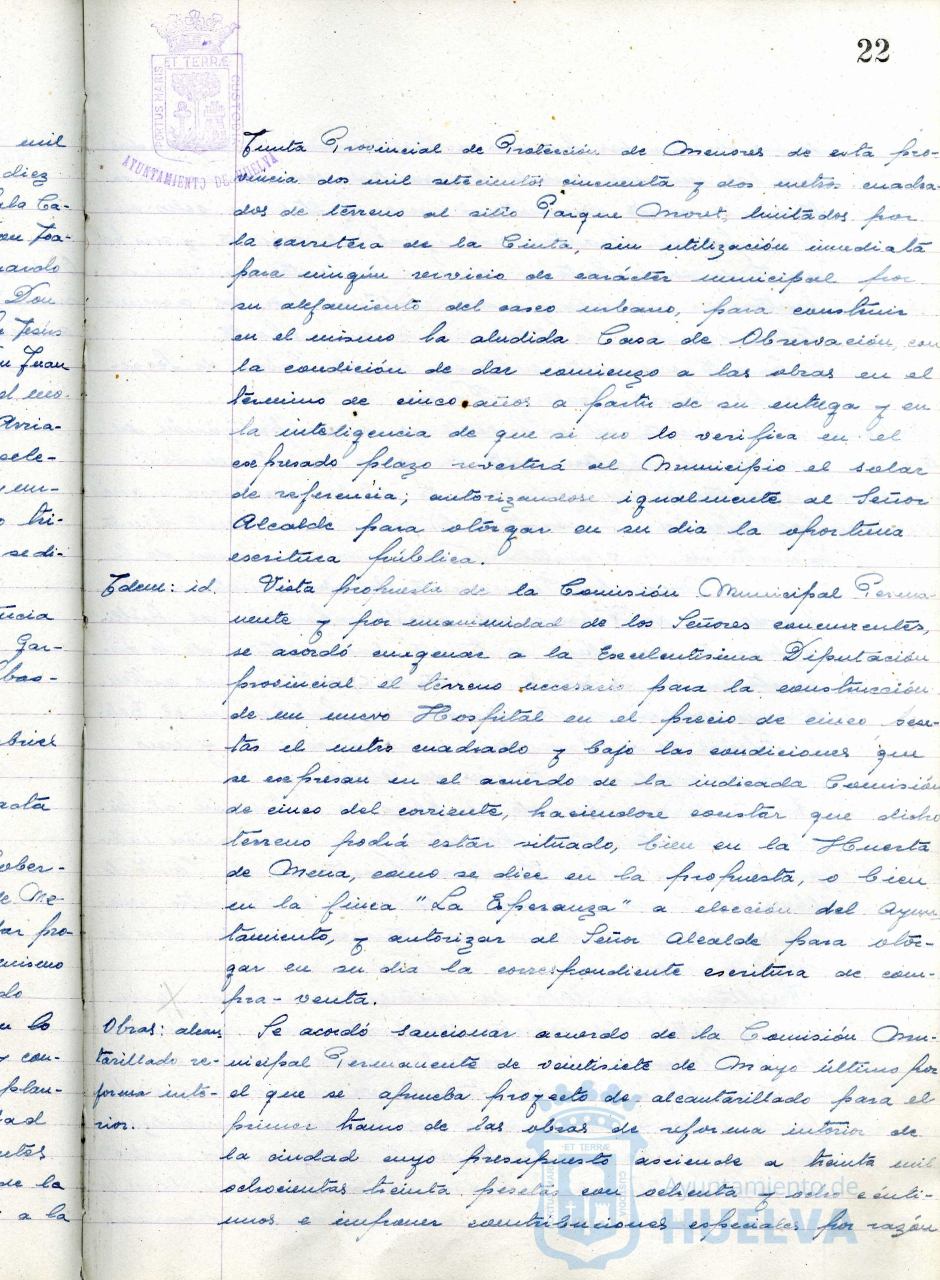 22
PORTUS MARIS ET TERRÆ CUSTODIA
AYUNTAMIENTO DE HUELVA
Junta Provincial de Protección de Menores de esta pro-
vincia dos mil setecientos cincuenta y dos metros cuadra-
dos de terreno al sitio Parque Moret, limitados por
la carretera de la Cinta, sin utilización inmediata
para ningún servicio de carácter municipal por
su alejamiento del casco urbano, para construir
en el mismo la aludida Casa de Observación, con
la condición de dar comienzo a las obras en el
término de cinco años a partir de su entrega y en
la inteligencia de que si no lo verifica en el
expresado plazo revertirá al Municipio el solar
de referencia; autorizandose igualmente al Señor
Alcalde para otorgar en su dia la oportuna
escritura pública.
Idem: id. Vista propuesta de la Comisión Municipal Perma-
nente y por unanimidad de los Señores concurrentes,
se acordó enagenar a la Excelentísima Diputación
provincial el terreno necesario para la construcción
de un nuevo Hospital en el precio de cinco pese-
tas el metro cuadrado y bajo las condiciones que
se expresan en el acuerdo de la indicada Comisión
de cinco del corriente, haciendose constar que dicho
terreno podrá estar situado, bien en la Huerta
de Mena, como se dice en la propuesta, o bien
en la finca "La Esperanza" a elección del Ayun
tamiento, y autorizar al Señor Alcalde para otor-
gar en su dia la correspondiente escritura de com-
pra-venta.
Obras: alcan_ Se acordó sancionar acuerdo de la Comisión Mu-
tarillado re- nicipal Permanente de veintisiete de Mayo último por
forma inte- el que se aprueba proyecto de alcantarillado para el
rior. primer tramo de las obras de reforma interior de
la ciudad cuyo presupuesto asciende a treinta mil
ochocientas treinta pesetas con ochenta y ocho cénti-
mos e imponer contribuciones especiales por razón
Ayuntamiento de
HUELVA